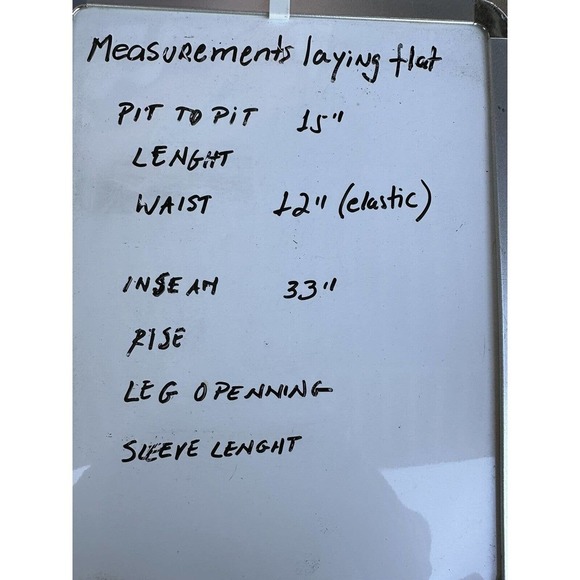 Measurements laying flat
PIT TO PIT 15"
LENGHT
WAIST 12" (elastic)
INSEAM 33"
RISE
LEG OPENNING
SLEEVE LENGHT